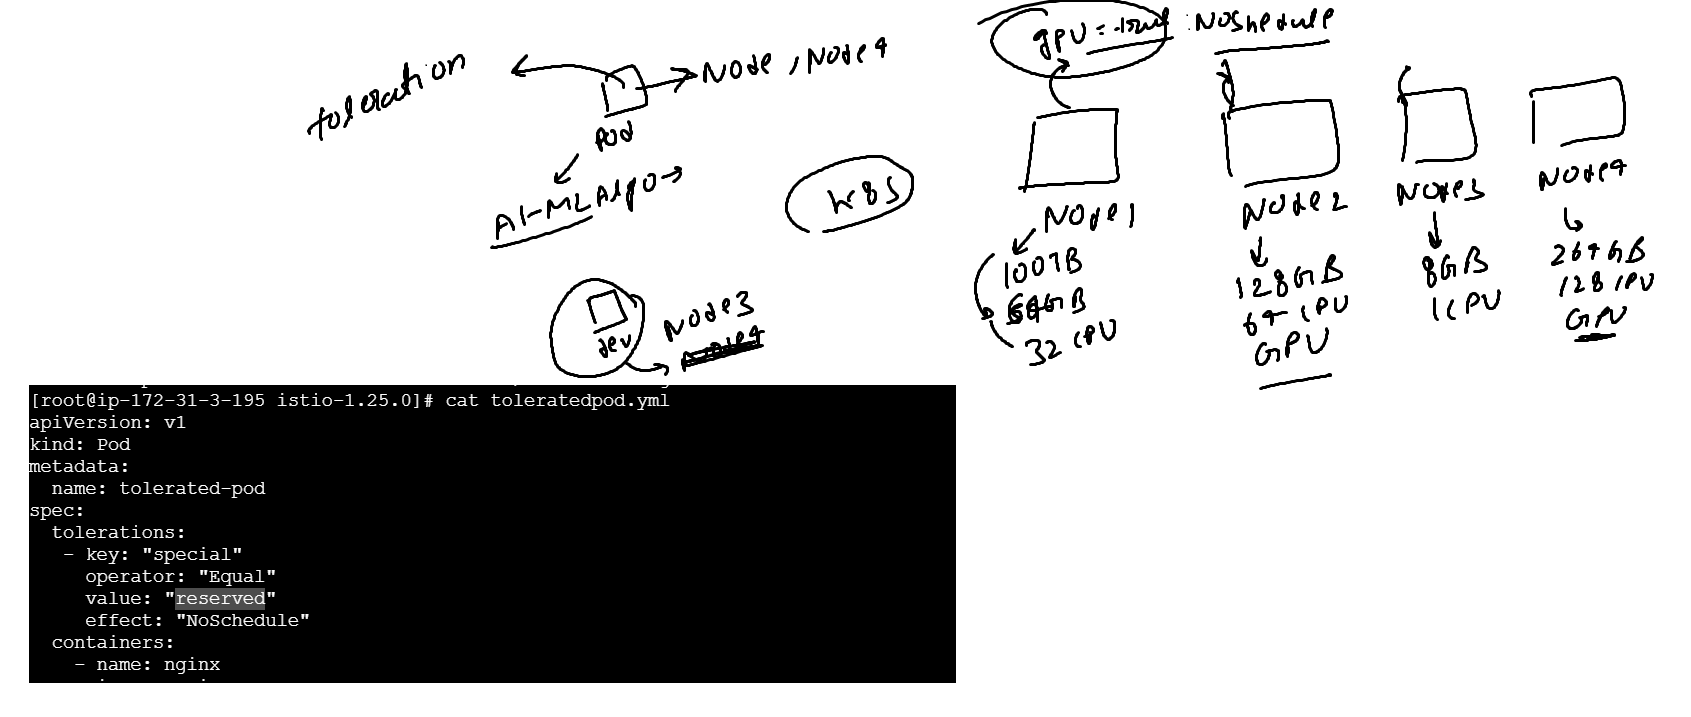 toleration
Node , Node4
Pod
AI-ML Algo
K8S
dev
Node3
Node4
gpu = true : NoShedule
Node1
100TB
64GB
32 CPU
Node2
128GB
64 CPU
GPU
Node3
8GB
1CPU
Node4
264GB
128 CPU
GPU
[root@ip-172-31-3-195 istio-1.25.0]# cat toleratedpod.yml
apiVersion: v1
kind: Pod
metadata:
  name: tolerated-pod
spec:
  tolerations:
   - key: "special"
     operator: "Equal"
     value: "reserved"
     effect: "NoSchedule"
  containers:
    - name: nginx